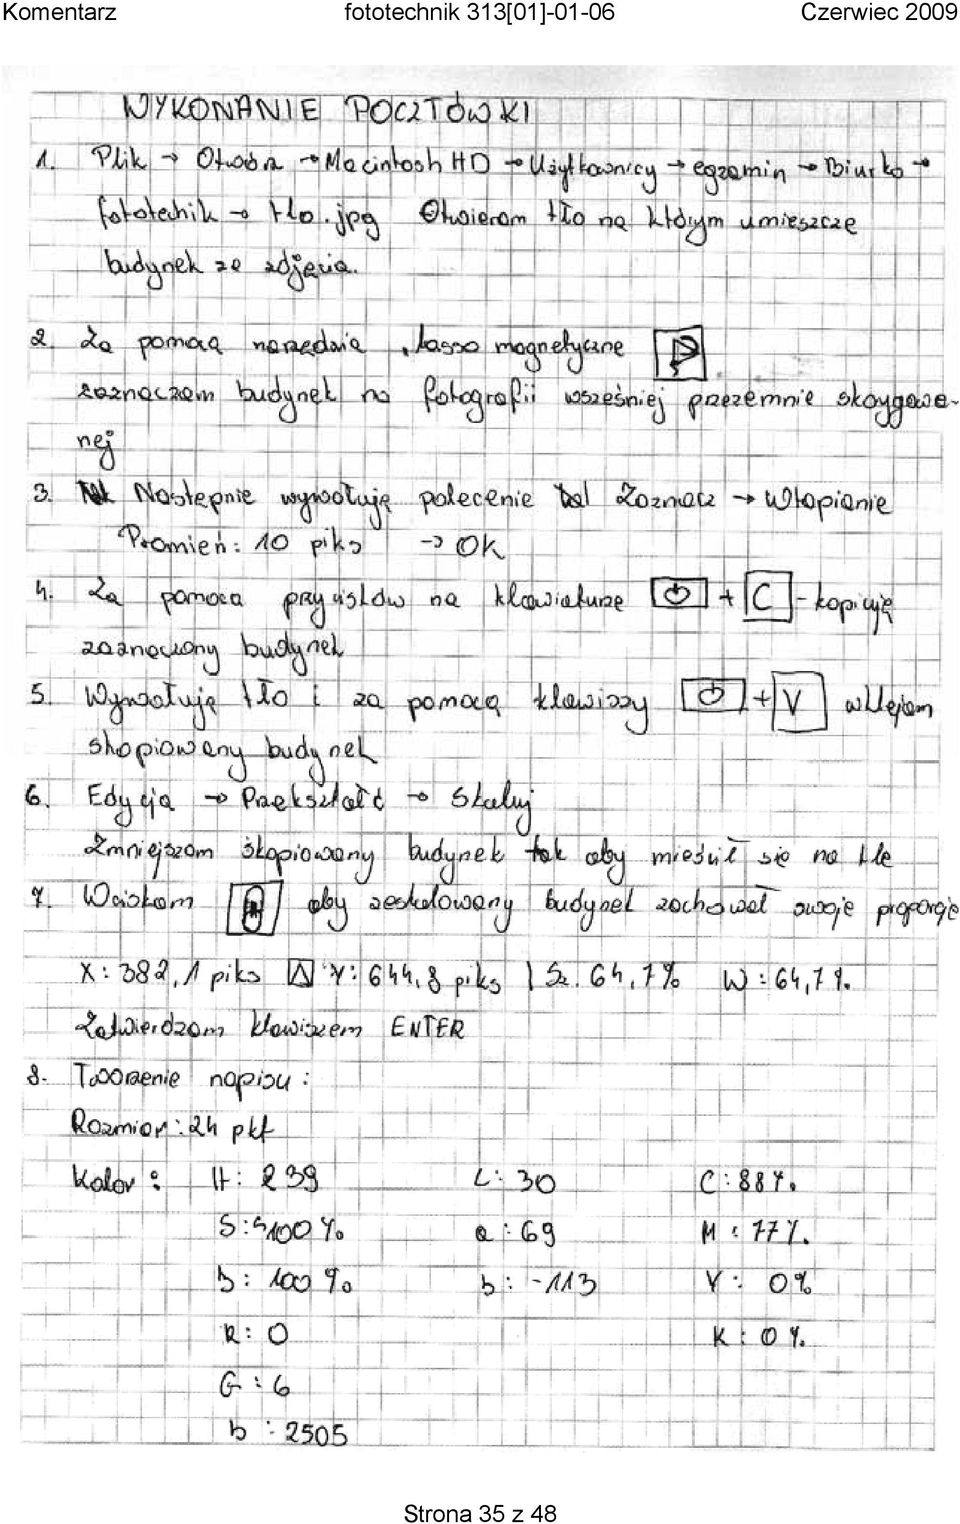 Komentarz fototechnik 313[01]-01-06 Czerwiec 2009
WYKONANIE POCZTÓWKI
1. Plik → Otwórz → Macintosh HD → Użytkownicy → egzamin → Biurko →
fototechnik → tlo.jpg Otwieram tło na którym umieszczę
budynek ze zdjęcia.
2. Za pomocą narzędzia „lasso magnetyczne
zaznaczam budynek na fotografii wsześniej przezemnie skorygowa-
nej
3. Następnie wywołuję polecenie Zaznacz → Wtapianie
Promień: 10 piks → OK
4. Za pomocą przycisków na klawiaturze + C - kopiuję
zaznaczony budynek
5. Wywołuję tło i za pomocą klawiszy + V wklejam
skopiowany budynek
6. Edycja → Przekształć → Skaluj
Zmniejszam skopiowany budynek tak aby mieścił się na tle
7. Wciskam aby zeskalowany budynek zachował swoje proporcje
X: 382,1 piks Δ Y: 644,8 piks | Sz. 64,7% W: 64,7%
Zatwierdzam klawiszem ENTER
8. Tworzenie napisu:
Rozmiar: 24 pkt
Kolor: H: 239 L: 30 C: 88%
S: 100% a: 69 M: 77%
b: 100% b: -113 Y: 0%
R: 0 K: 0%
G: 6
b: 2505
Strona 35 z 48